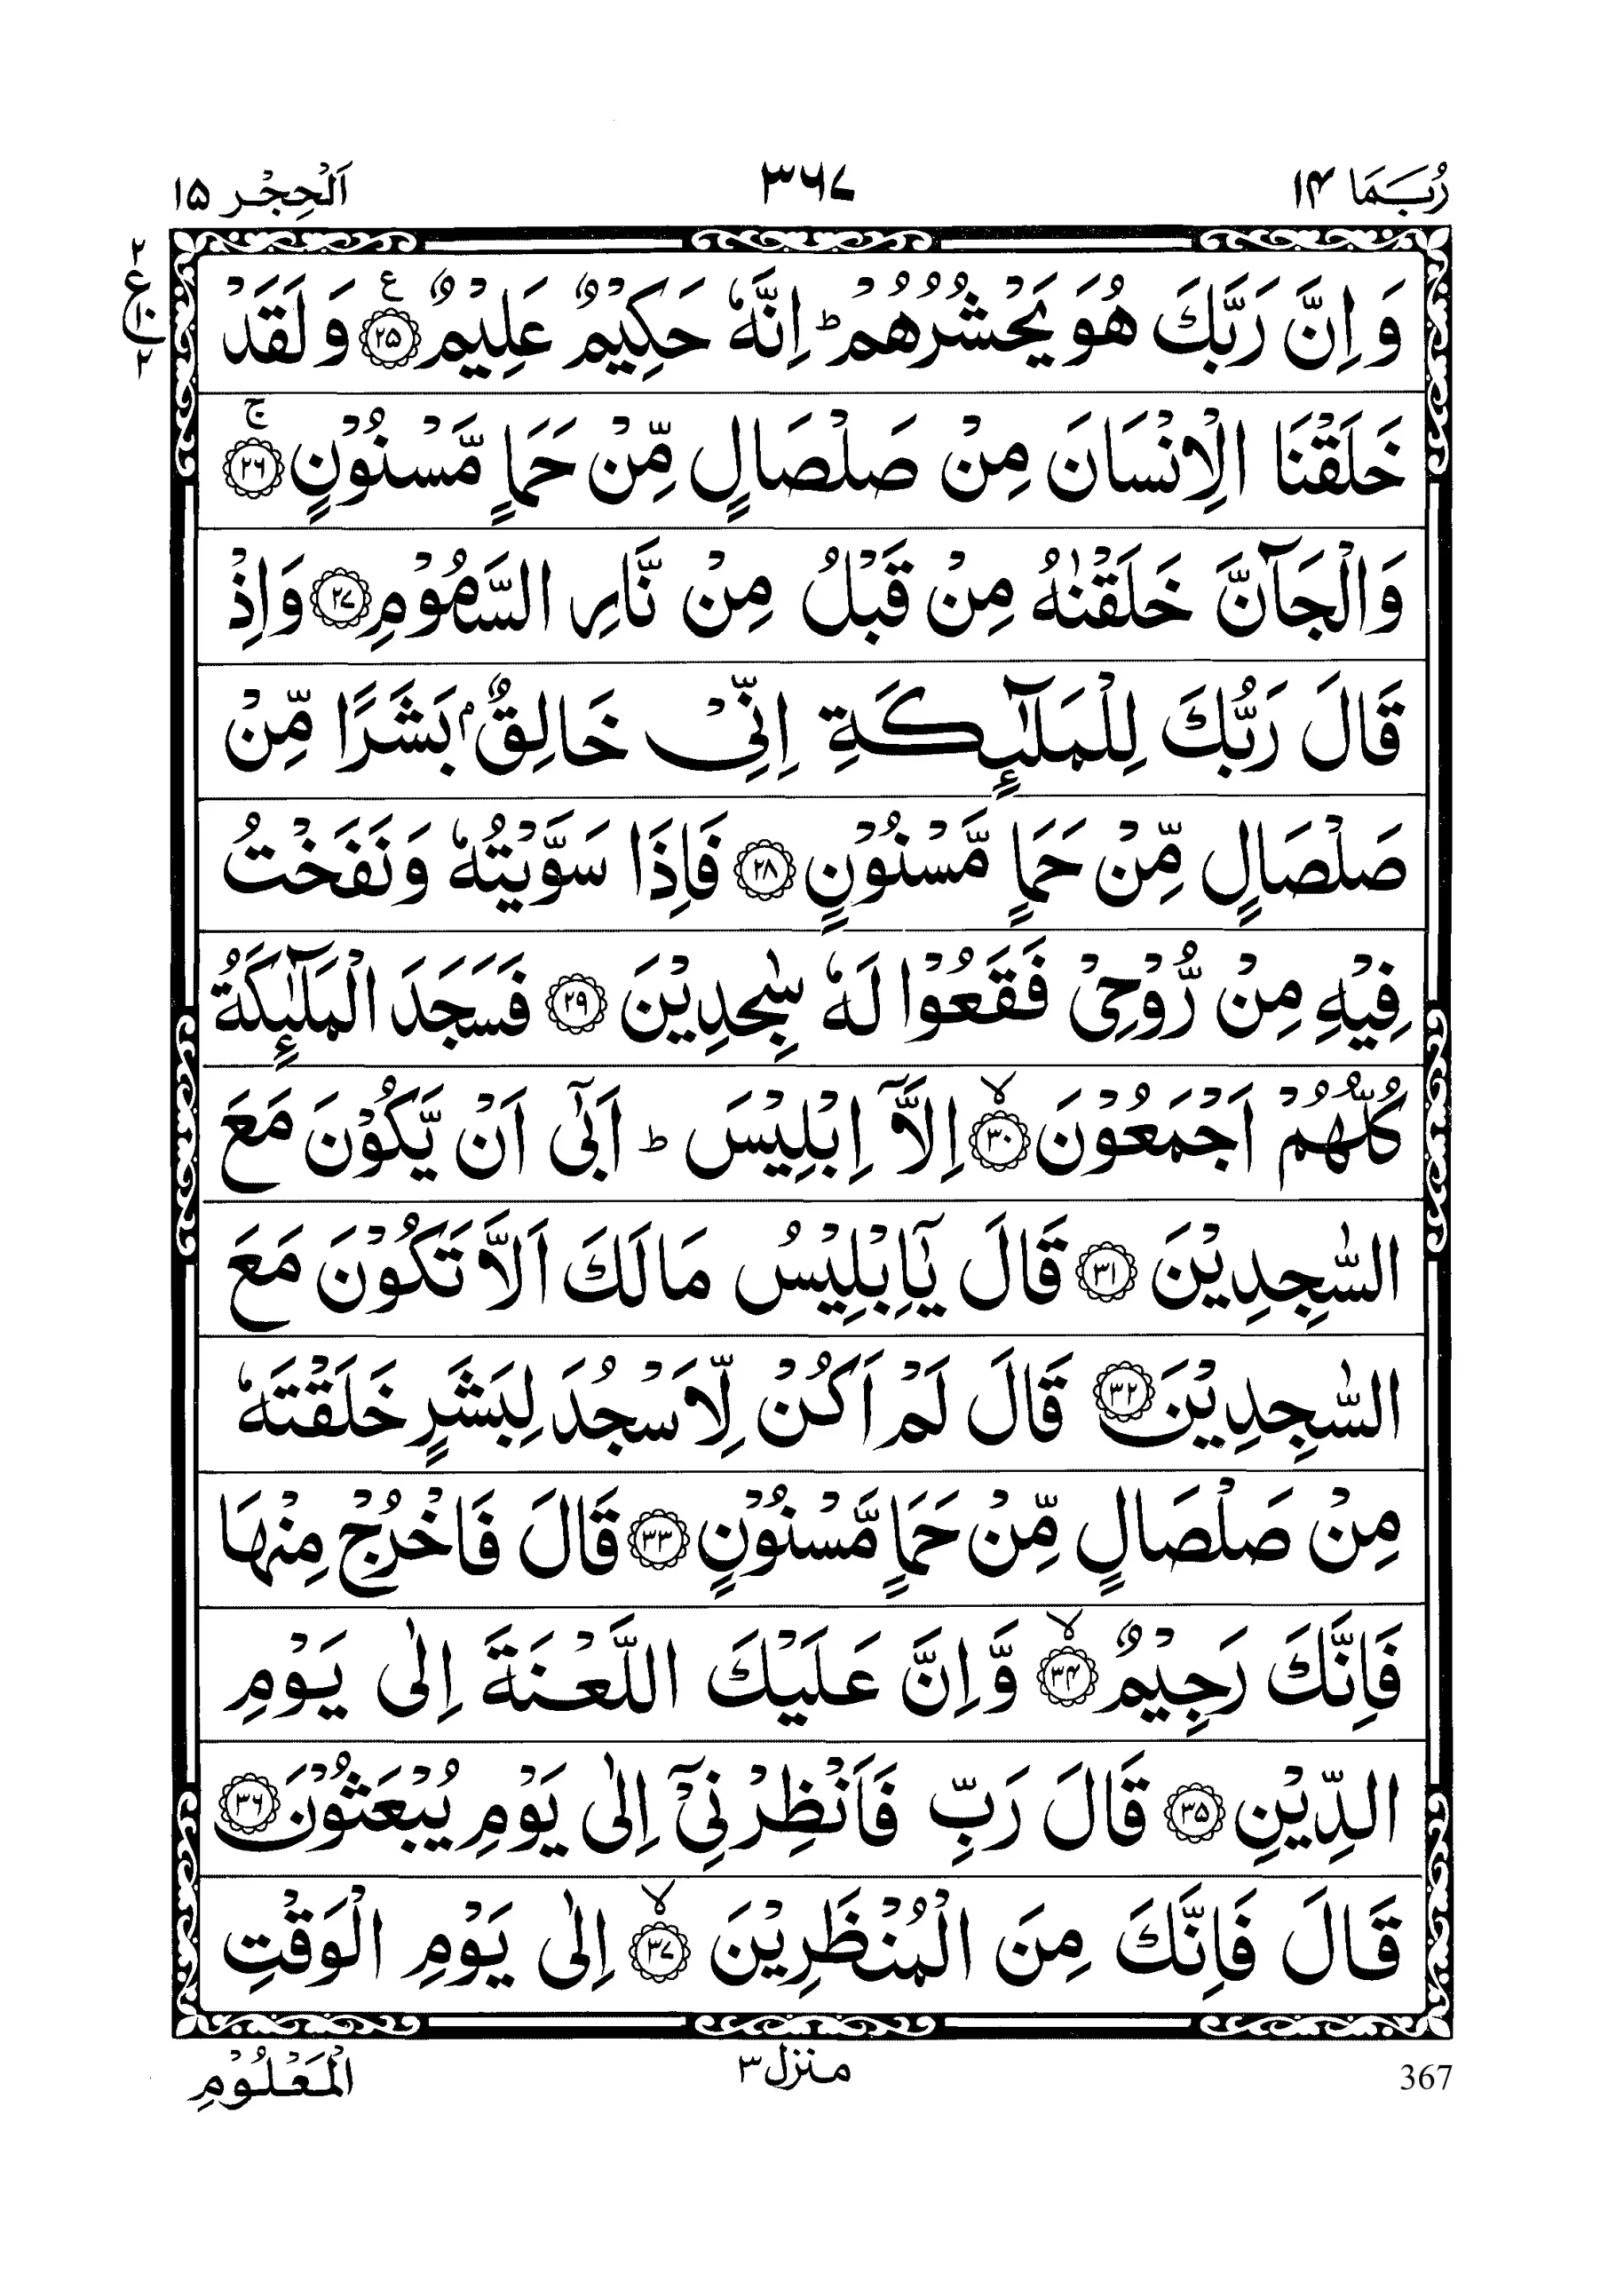 رُبَمَا ١٤
٣٦٧
اَلْحِجْر ١٥
٢
ع
١٠
٢
وَ اِنَّ رَبَّكَ هُوَ يَحْشُرُهُمْ ؕ اِنَّهٗ حَكِيْمٌ عَلِيْمٌ ۧ ﴿۲۵﴾ وَ لَقَدْ
خَلَقْنَا الْاِنْسَانَ مِنْ صَلْصَالٍ مِّنْ حَمَاٍ مَّسْنُوْنٍ ۚ ﴿۲۶﴾
وَالْجَآنَّ خَلَقْنٰهُ مِنْ قَبْلُ مِنْ نَّارِ السَّمُوْمِ ﴿۲۷﴾ وَاِذْ
قَالَ رَبُّكَ لِلْمَلٰٓئِكَةِ اِنِّىْ خَالِقٌۢ بَشَرًا مِّنْ
صَلْصَالٍ مِّنْ حَمَاٍ مَّسْنُوْنٍ ﴿۲۸﴾ فَاِذَا سَوَّيْتُهٗ وَنَفَخْتُ
فِيْهِ مِنْ رُّوْحِىْ فَقَعُوْا لَهٗ سٰجِدِيْنَ ﴿۲۹﴾ فَسَجَدَ الْمَلٰٓئِكَةُ
كُلُّهُمْ اَجْمَعُوْنَ ۙ ﴿۳۰﴾ اِلَّاۤ اِبْلِيْسَ ؕ اَبٰٓى اَنْ يَّكُوْنَ مَعَ
السّٰجِدِيْنَ ﴿۳۱﴾ قَالَ يٰۤاِبْلِيْسُ مَا لَكَ اَلَّا تَكُوْنَ مَعَ
السّٰجِدِيْنَ ﴿۳۲﴾ قَالَ لَمْ اَكُنْ لِّاَسْجُدَ لِبَشَرٍ خَلَقْتَهٗ
مِنْ صَلْصَالٍ مِّنْ حَمَاٍ مَّسْنُوْنٍ ﴿۳۳﴾ قَالَ فَاخْرُجْ مِنْهَا
فَاِنَّكَ رَجِيْمٌ ۙ ﴿۳۴﴾ وَّ اِنَّ عَلَيْكَ اللَّعْنَةَ اِلٰى يَوْمِ
الدِّيْنِ ﴿۳۵﴾ قَالَ رَبِّ فَاَنْظِرْنِىْۤ اِلٰى يَوْمِ يُبْعَثُوْنَ ﴿۳۶﴾
قَالَ فَاِنَّكَ مِنَ الْمُنْظَرِيْنَ ۙ ﴿۳۷﴾ اِلٰى يَوْمِ الْوَقْتِ
الْمَعْلُوْمِ
منزل ٣
367